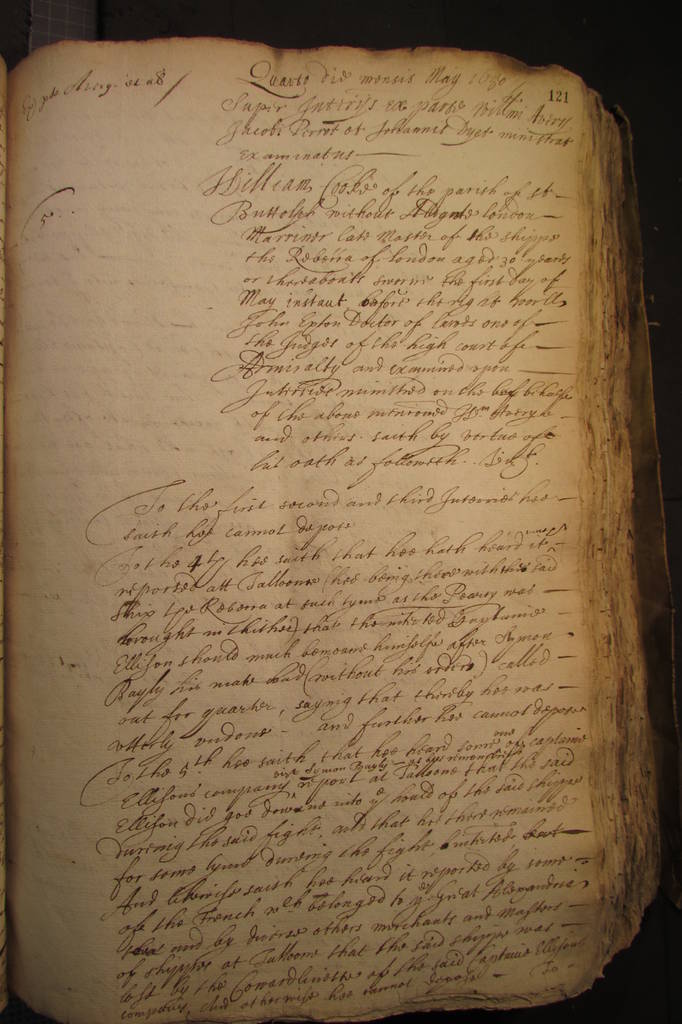 121
Quarto die mensis May 1650
Super Interijs ex parte Willmi Avery
Jacobi Perrot et Johannis Dyet ministrat
examinatus
5.
William Cooke of the parish of St
Buttolph without Algate london
Marriner late Master of the shippe
the Rebecca of london aged 30 yeares
or thereabouts sworne the first day of
May instant before the right worll
John Exton Doctor of lawes one of
the Judges of the high court of
Admiralty and examined upon
Interries ministred on the behalfe
of the above mencioned Wm Avery
and others saith by vertue of
his oath as followeth. vizt.
To the first second and third Interries hee
saith hee cannot depose
To the 4th hee saith that hee hath heard it
reported att Talloone (hee being there with his said
ship the Rebecca at such tyme as the Pearry was
brought in thither) that the Captaine
Ellison should much bemoane himselfe after Symon
Bayly his mate had (without his order) called
out for quarter, saying that thereby hee was
utterly undone and further hee cannot depose
To the 5th hee saith that hee heard some one of captaine
Ellisons company vizt Symon Bayly report at Talloone that the said
Ellison did goe downe into ye hould of the said shippe
during the said fight, and that hee there remained
for some tyme during the fight
And likewise saith hee heard it reported by some
of the French wch belonged to ye Great Alexandria
and by diverse others merchants and Masters
of shipps at Talloone that the said shippe was
lost by the Cowardlinesse of the said Captaine Ellison
and otherwise hee cannot depose
To